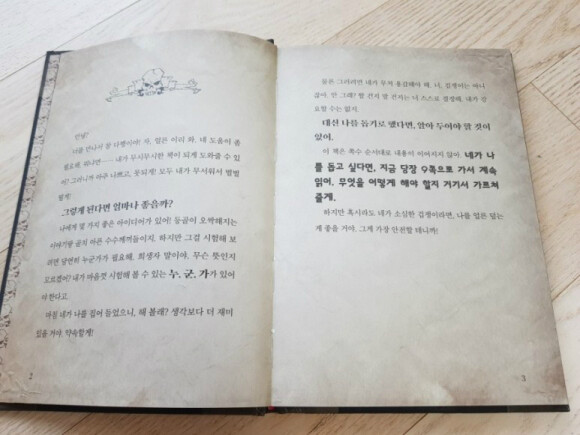 안녕?
너를 만나서 참 다행이야! 자, 얼른 이리 와. 네 도움이 좀
필요해. 왜냐면── 내가 무시무시한 책이 되게 도와줄 수 있
어? 그러니까 아주 나쁘고, 못되게! 모두 내가 무서워서 벌벌
떨게!
그렇게 된다면 얼마나 좋을까?
나에게 몇 가지 좋은 아이디어가 있어! 등골이 오싹해지는
이야기랑 골치 아픈 수수께끼들이지. 하지만 그걸 시험해 보
려면 당연히 누군가가 필요해. 희생자 말이야. 무슨 뜻인지
모르겠어? 내가 마음껏 시험해 볼 수 있는 누, 군, 가가 있어
야 한다고.
마침 네가 나를 집어 들었으니, 해 볼래? 생각보다 더 재미
있을 거야. 약속할게!
2
물론 그러려면 네가 무척 용감해야 해. 너, 겁쟁이는 아니
잖아. 안 그래? 할 건지 말 건지는 너 스스로 결정해. 내가 강
요할 수는 없지.
대신 나를 돕기로 했다면, 알아 두어야 할 것이
있어.
이 책은 쪽수 순서대로 내용이 이어지지 않아. 네가 나
를 돕고 싶다면, 지금 당장 9쪽으로 가서 계속
읽어. 무엇을 어떻게 해야 할지 거기서 가르쳐
줄게.
하지만 혹시라도 네가 소심한 겁쟁이라면, 나를 얼른 덮는
게 좋을 거야. 그게 가장 안전할 테니까!
3